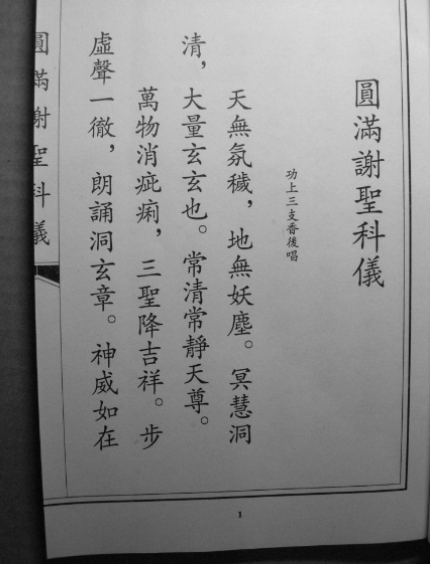 圓滿謝聖科儀
功上三支香後唱
天無氛穢，地無妖塵。冥慧洞
清，大量玄玄也。常清常靜天尊。
萬物消疵痢，三聖降吉祥。步
虛聲一徹，朗誦洞玄章。神威如在
圓滿謝聖科儀
1